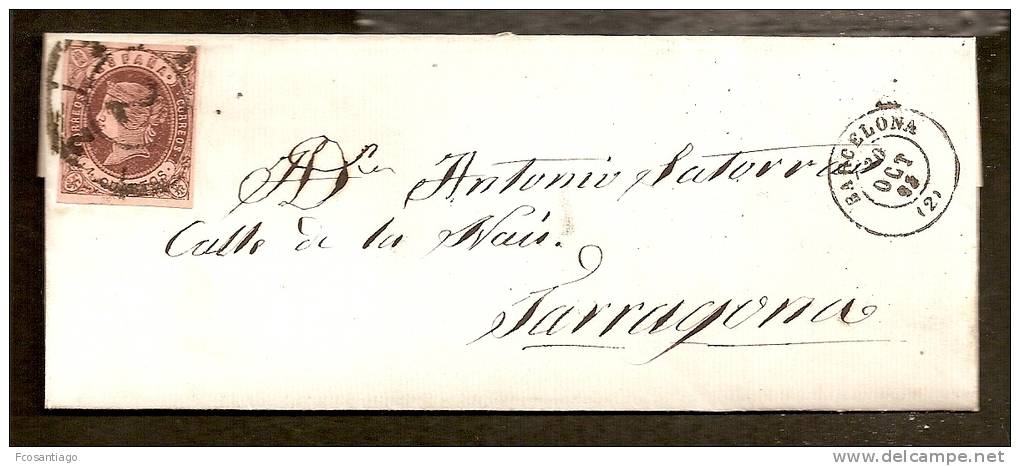 ESPAÑA
CORREOS CORREOS
4 CUARTOS.
BARCELONA
20
OCT
(2)
Antonio Latorre
Calle de la Nau.
Tarragona
Fcosantiago.
http://www.delcampe.net